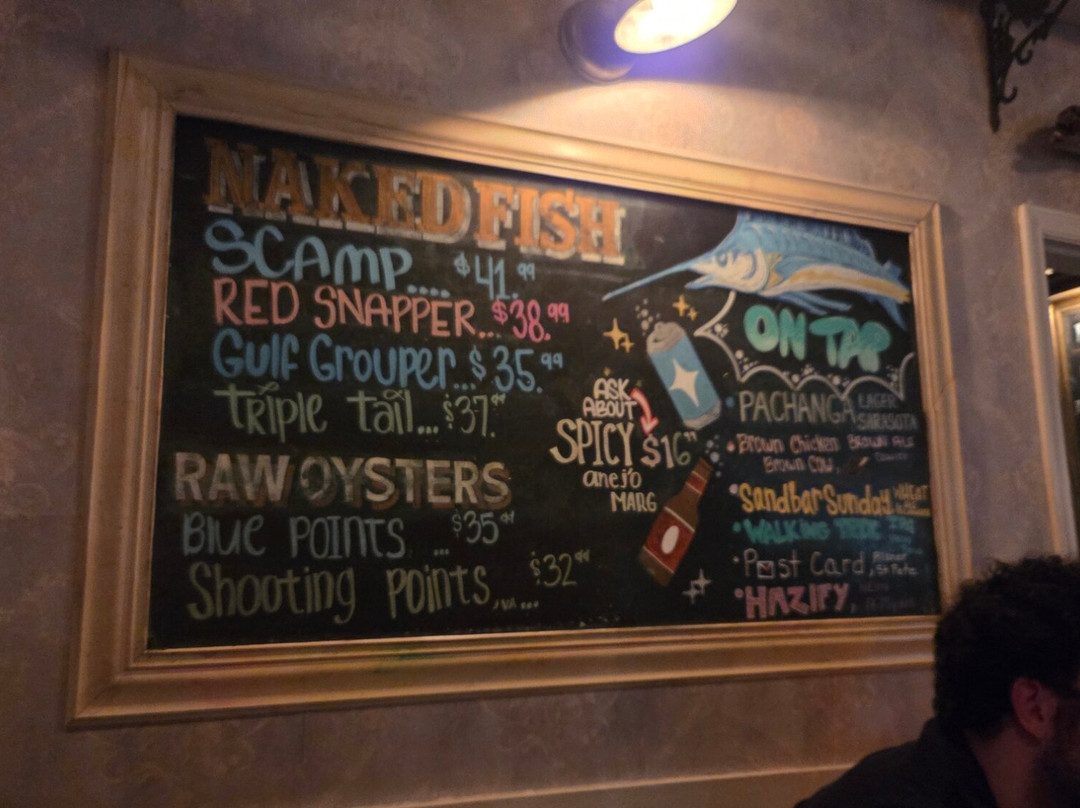 NAKED FISH
SCAMP.... $41.99
RED SNAPPER... $38.99
Gulf Grouper... $35.99
triple tail... $37.99
RAW OYSTERS
Blue POINTS ... $35
Shooting points, VA... $32
ASK
ABOUT
SPICY $16
anejo
MARG
ON TAP
• PACHANGA LAGER
SARASOTA
• Brown Chicken BROWN ALE
Brown COW,
• Sandbar Sunday WHEAT
• WALKING TREE
• Post Card, Pilsner
St Pete
• HAZIFY,